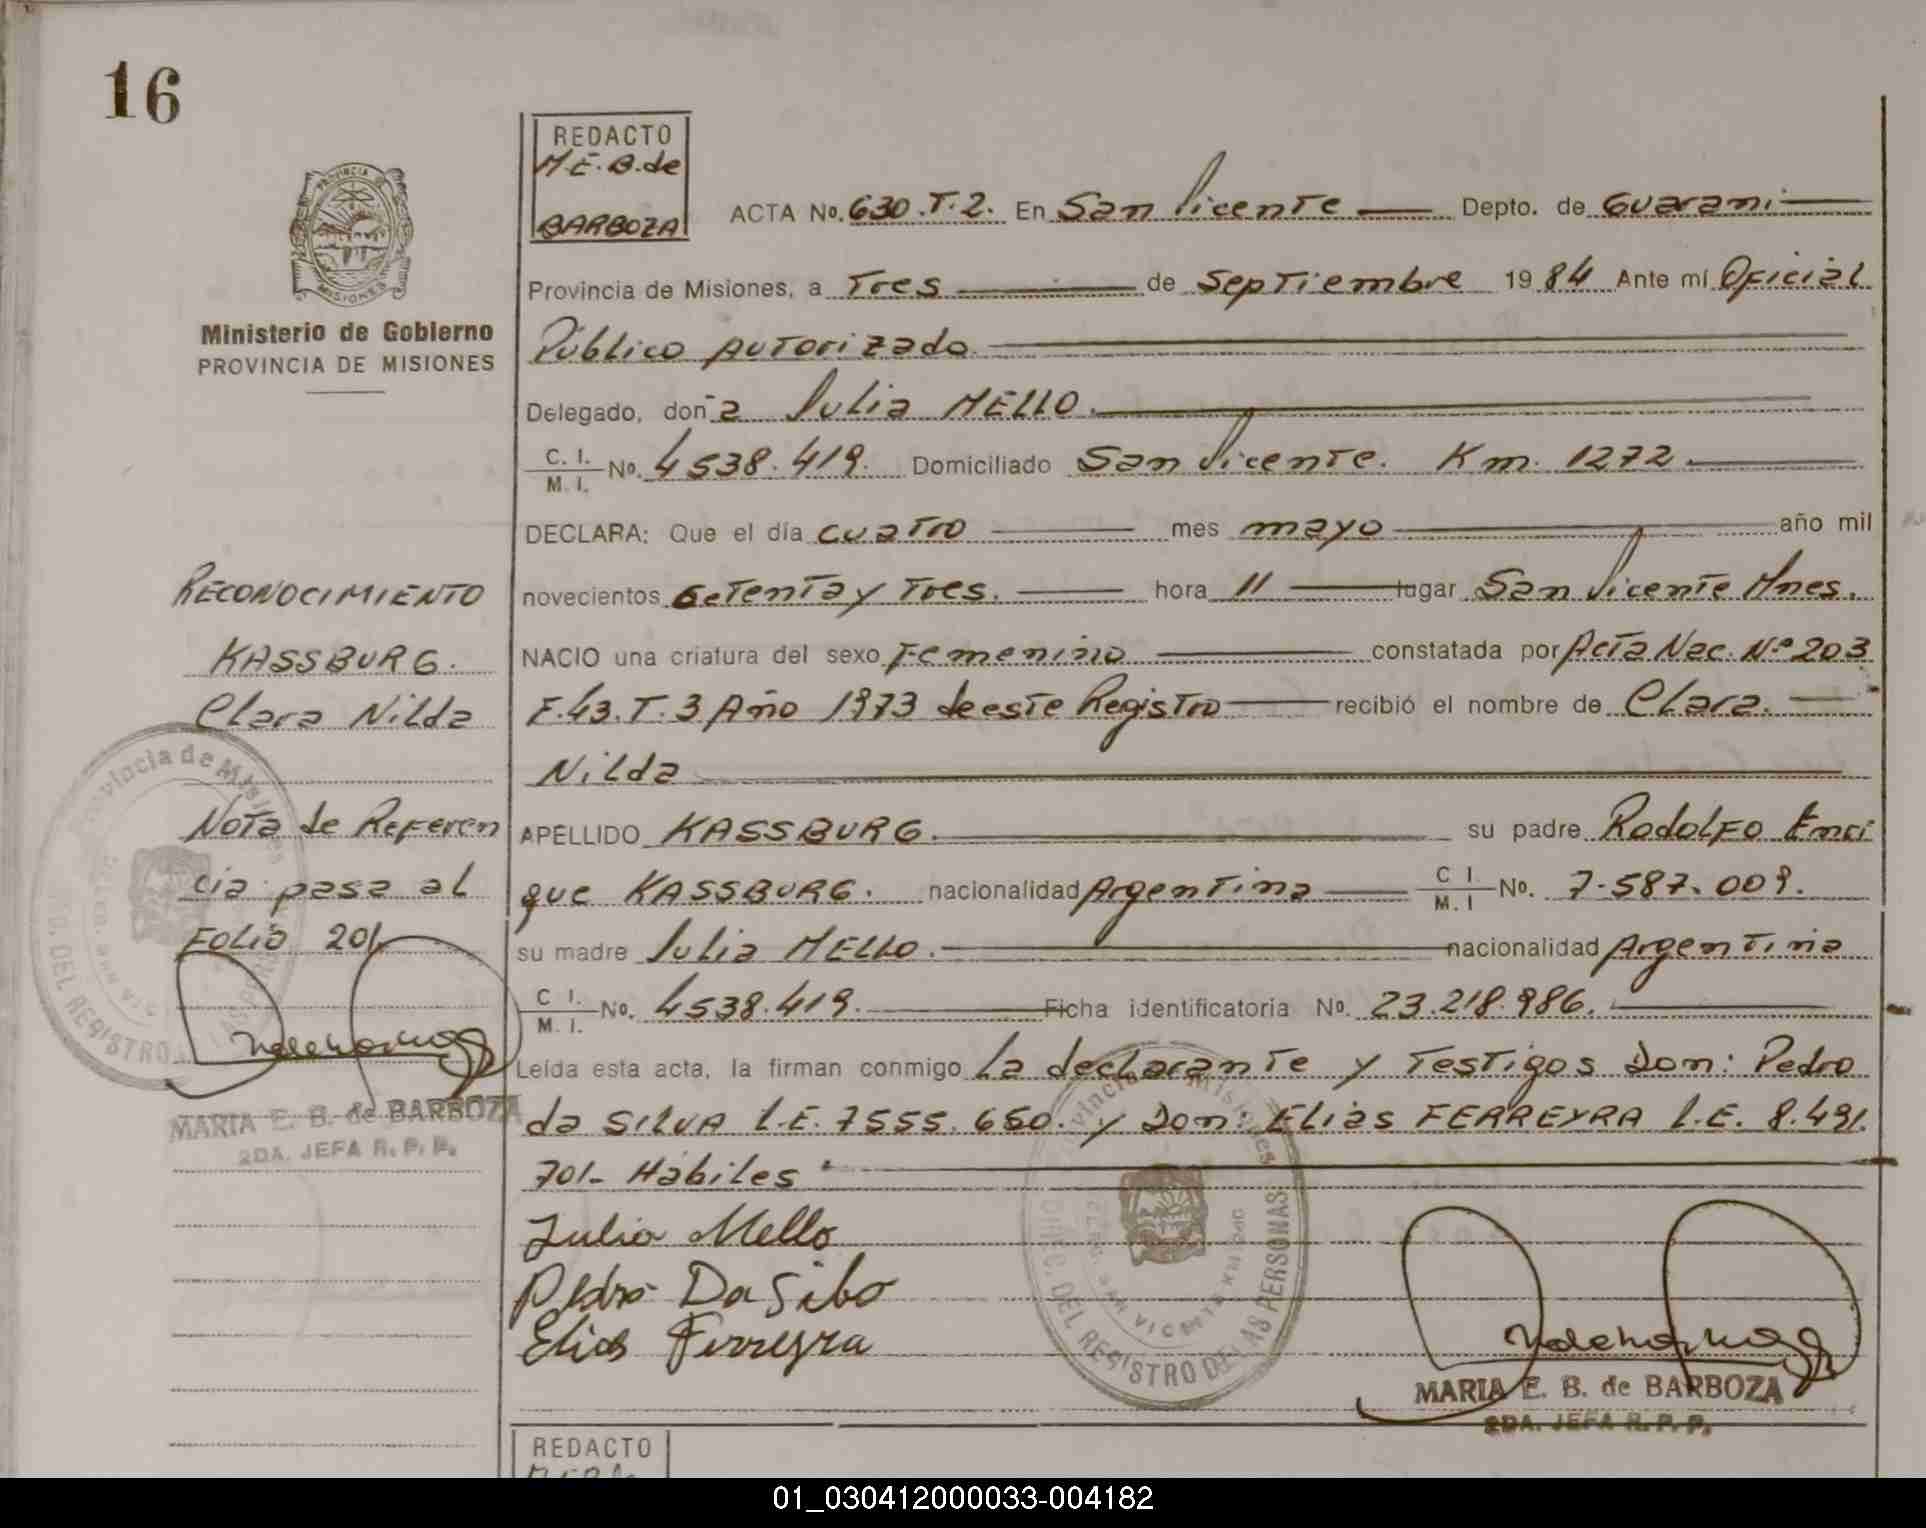 16
REDACTO
M.E.B. de
BARBOZA
ACTA No. 630.T.2. En San Vicente Depto. de Guarani
Provincia de Misiones, a Tres de Septiembre 1984 Ante mí Oficial
Público Autorizado
Delegado, doña Julia MELLO.
C. I.
M. I. No. 4538.419. Domiciliado San Vicente. Km. 1272
DECLARA: Que el día cuatro mes mayo año mil
novecientos Setenta y Tres. hora 11 lugar San Vicente Mnes.
NACIO una criatura del sexo Femenino constatada por Acta Nac. Nº 203
F.43.T.3 Año 1973 de este Registro recibió el nombre de Clara.
Nilda
APELLIDO KASSBURG. su padre Rodolfo Enri
que KASSBURG. nacionalidad Argentina C I. M. I No. 7.587.009.
su madre Julia MELLO. nacionalidad Argentina
C I.
M. I. No. 4538.419. Ficha identificatoria No. 23.218.986.
Leída esta acta, la firman conmigo La declarante y Testigos Don: Pedro
da SILVA L.E. 7555.650. y Don: Elias FERREYRA L.E. 8.491.
701- Hábiles
Julia Mello
Pedro Da Silbo
Elias Ferreyra
MARIA E. B. de BARBOZA
2DA. JEFA R. P. P.
PROVINCIA DE
MISIONES
Ministerio de Gobierno
PROVINCIA DE MISIONES
RECONOCIMIENTO
KASSBURG.
Clara Nilda
Nota de Referen
cia pasa al
Folio 201
MARIA E. B. de BARBOZA
2DA. JEFA R. P. P.
Provincia de Misiones
DEL REGISTRO
Provincia de Misiones
DIREC. DEL REGISTRO DE LAS PERSONAS
SAN VICENTE
REDACTO
01_030412000033-004182